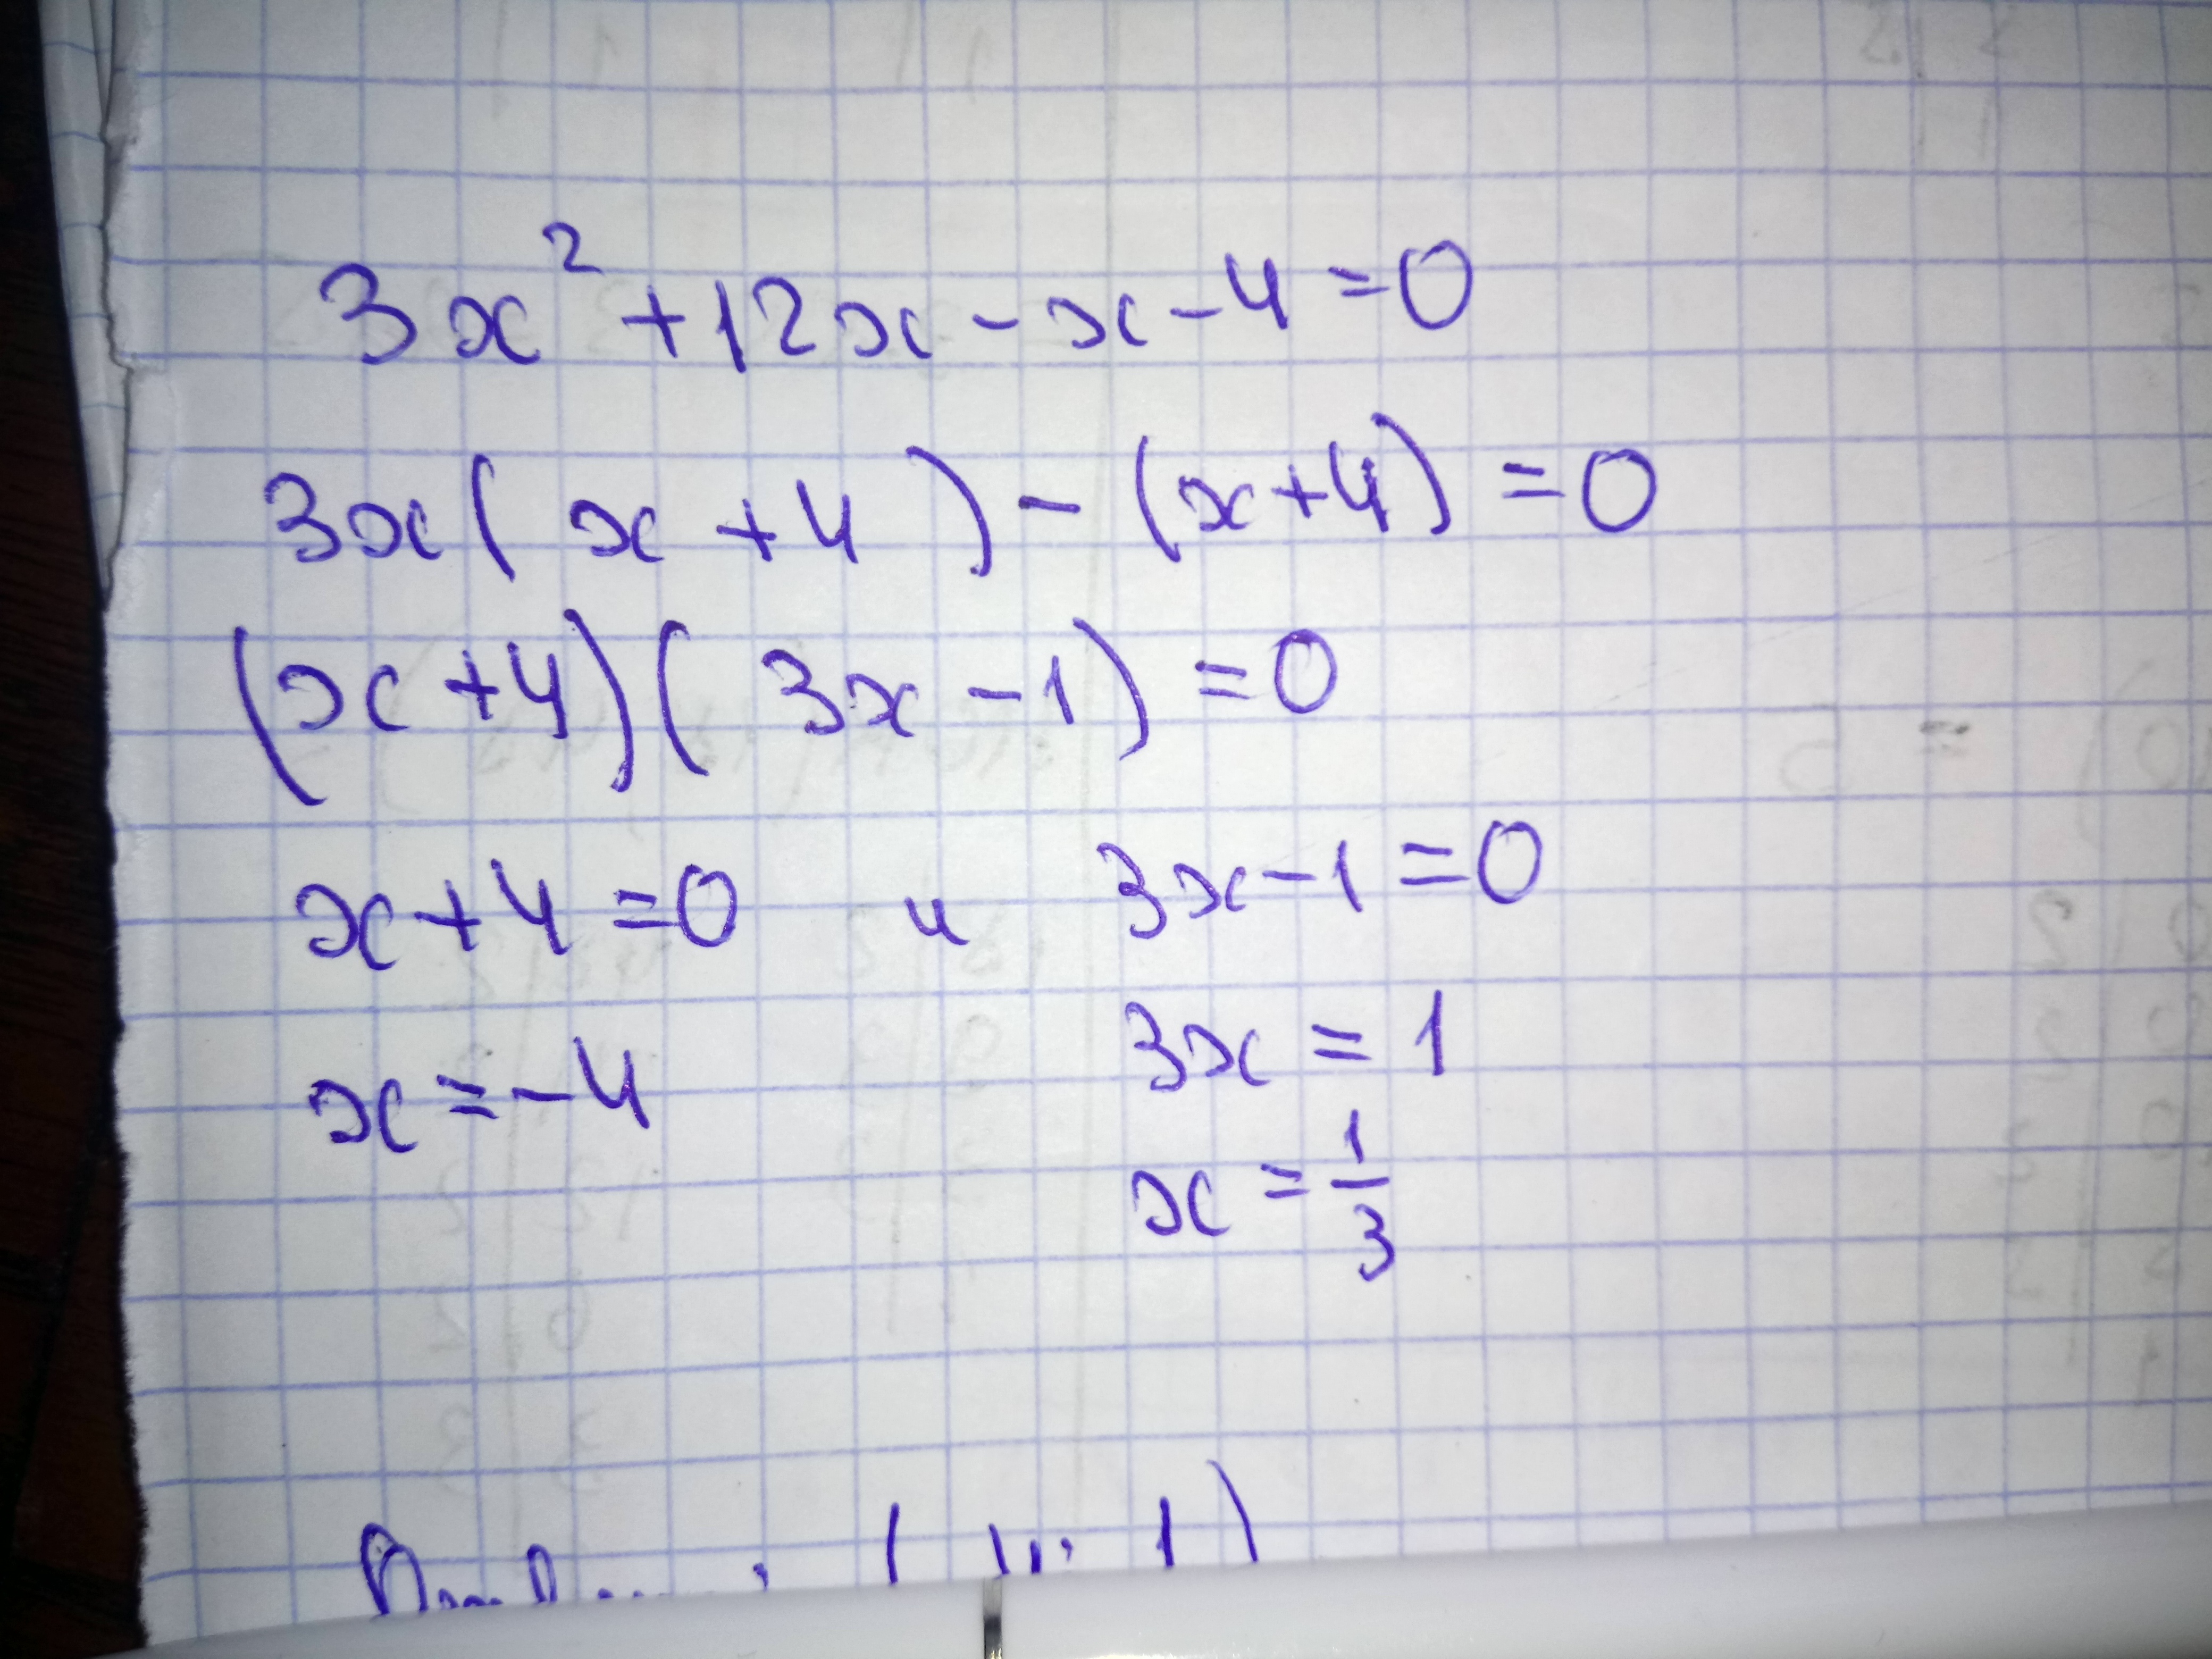 3x² + 12x - x - 4 = 0
3x( x + 4 ) - (x+4) = 0
(x+4)( 3x - 1) = 0
x+4 = 0 и 3x - 1 = 0
x = -4 3x = 1
x = 1/3